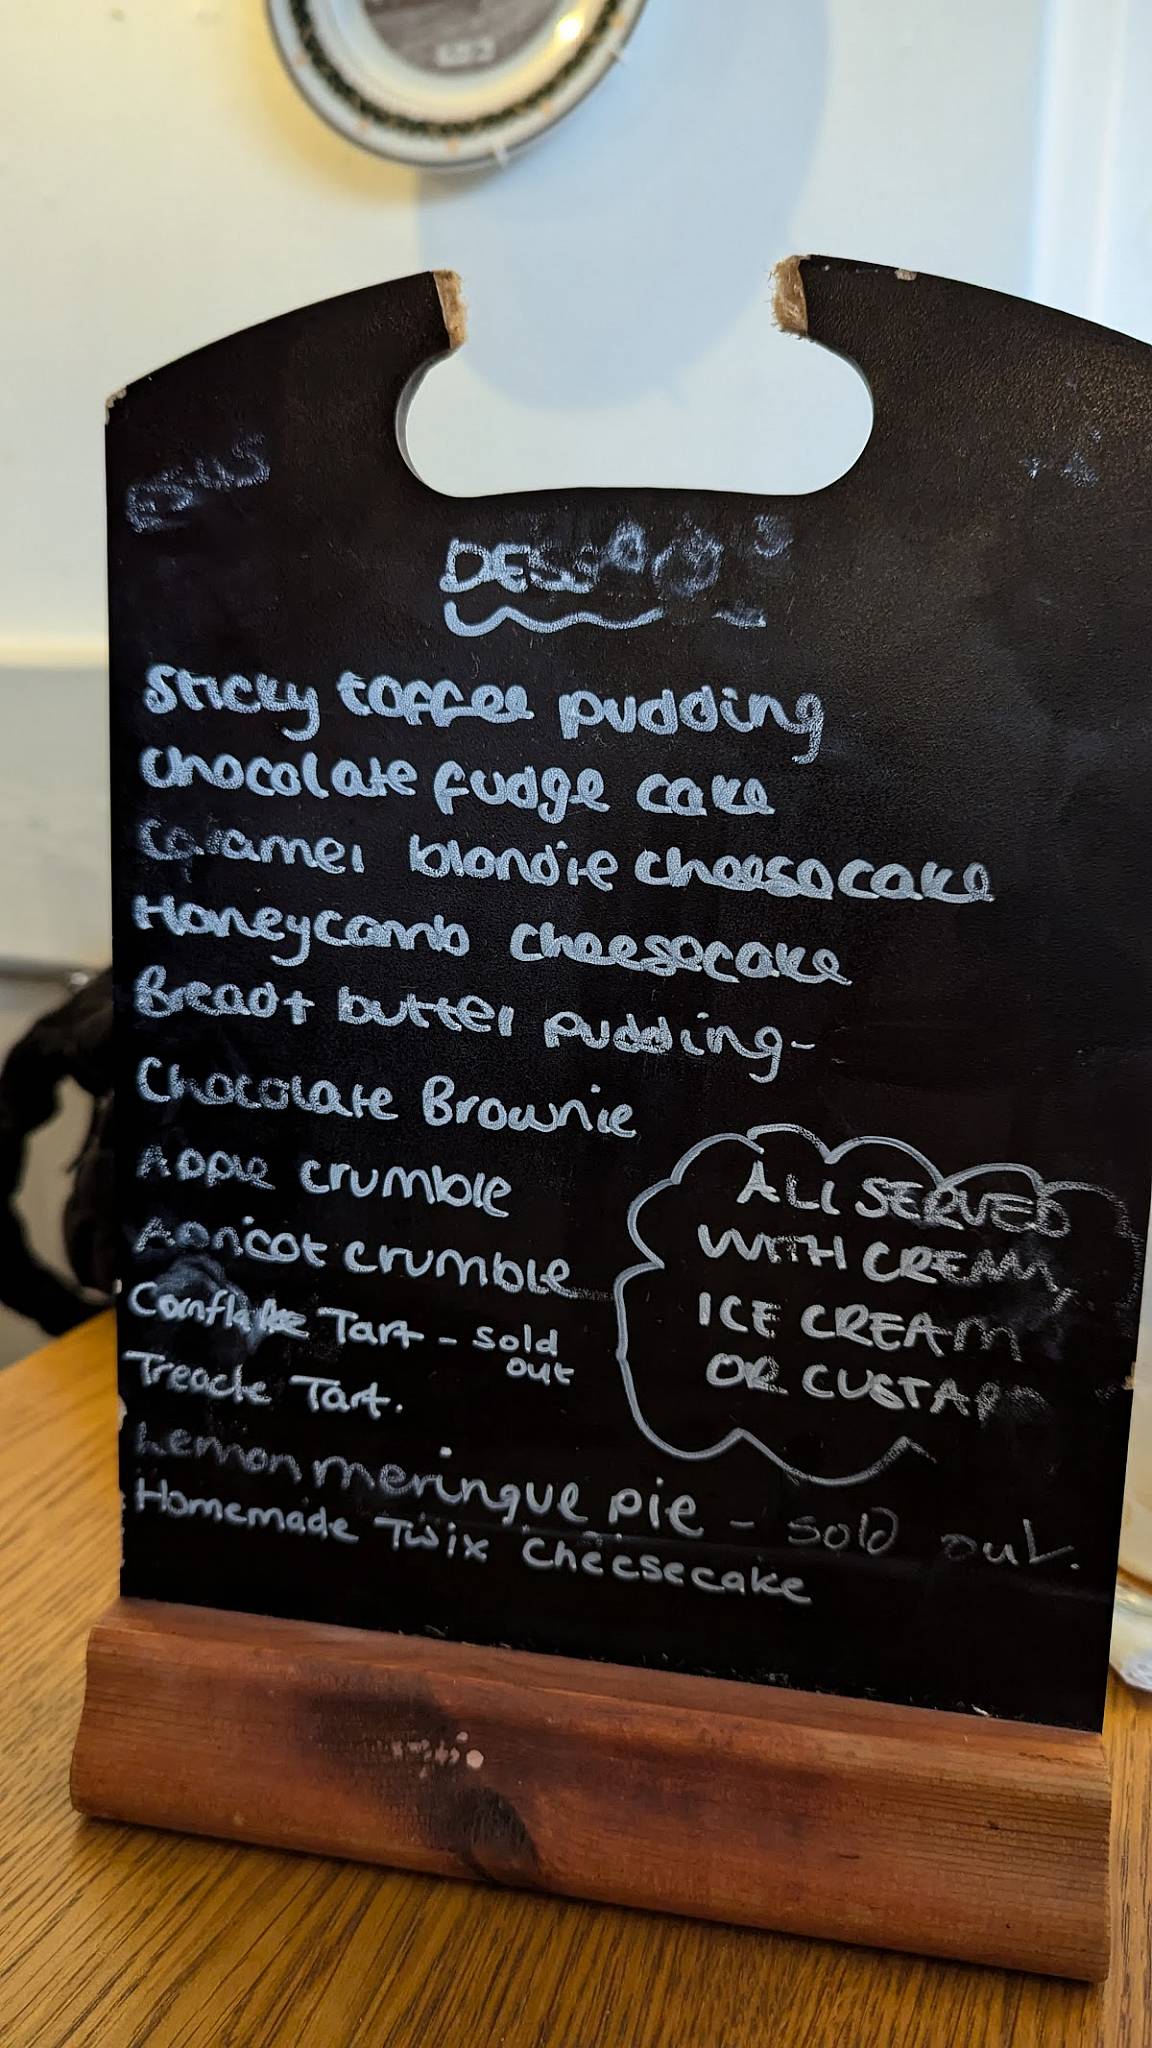 DESSERTS
Sticky toffee pudding
Chocolate fudge cake
Caramel blondie cheesecake
Honeycomb cheesecake
Bread + butter pudding-
Chocolate Brownie
Apple crumble
Apricot crumble
Cornflake Tart - sold
out
Treacle Tart.
Lemon meringue pie - sold out.
Homemade Twix Cheesecake
ALL SERVED
WITH CREAM,
ICE CREAM
OR CUSTARD